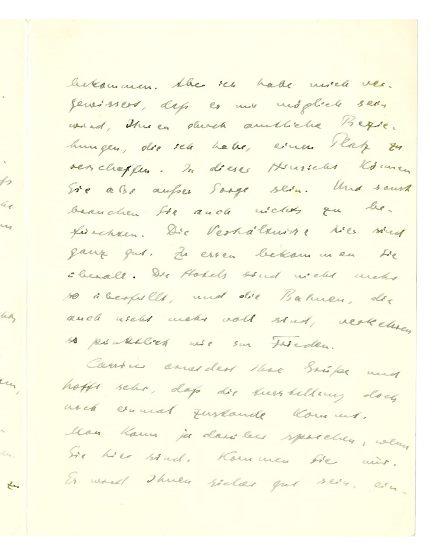 bekommen. Aber ich habe mich ver-
gewissert, daß es mir möglich sein
wird, Ihnen durch amtliche Bezie-
hungen, die ich habe, einen Platz zu
verschaffen. In dieser Hinsicht können
Sie also außer Sorge sein. Und sonst
brauchen Sie auch nichts zu be-
fürchten. Die Verhältnisse hier sind
ganz gut. Zu essen bekommen Sie
überall. Die Hotels sind nicht mehr
so überfüllt, und die Bahnen, die
auch nicht mehr voll sind, verkehren
so pünktlich wie im Frieden.
Cassirer erwidert Ihre Grüße und
hofft sehr, daß die Ausstellung doch
noch einmal zustande kommt.
Man kann ja darüber sprechen, wenn
Sie hier sind. Kommen Sie nur.
Es wird Ihnen sicher gut sein, ein-